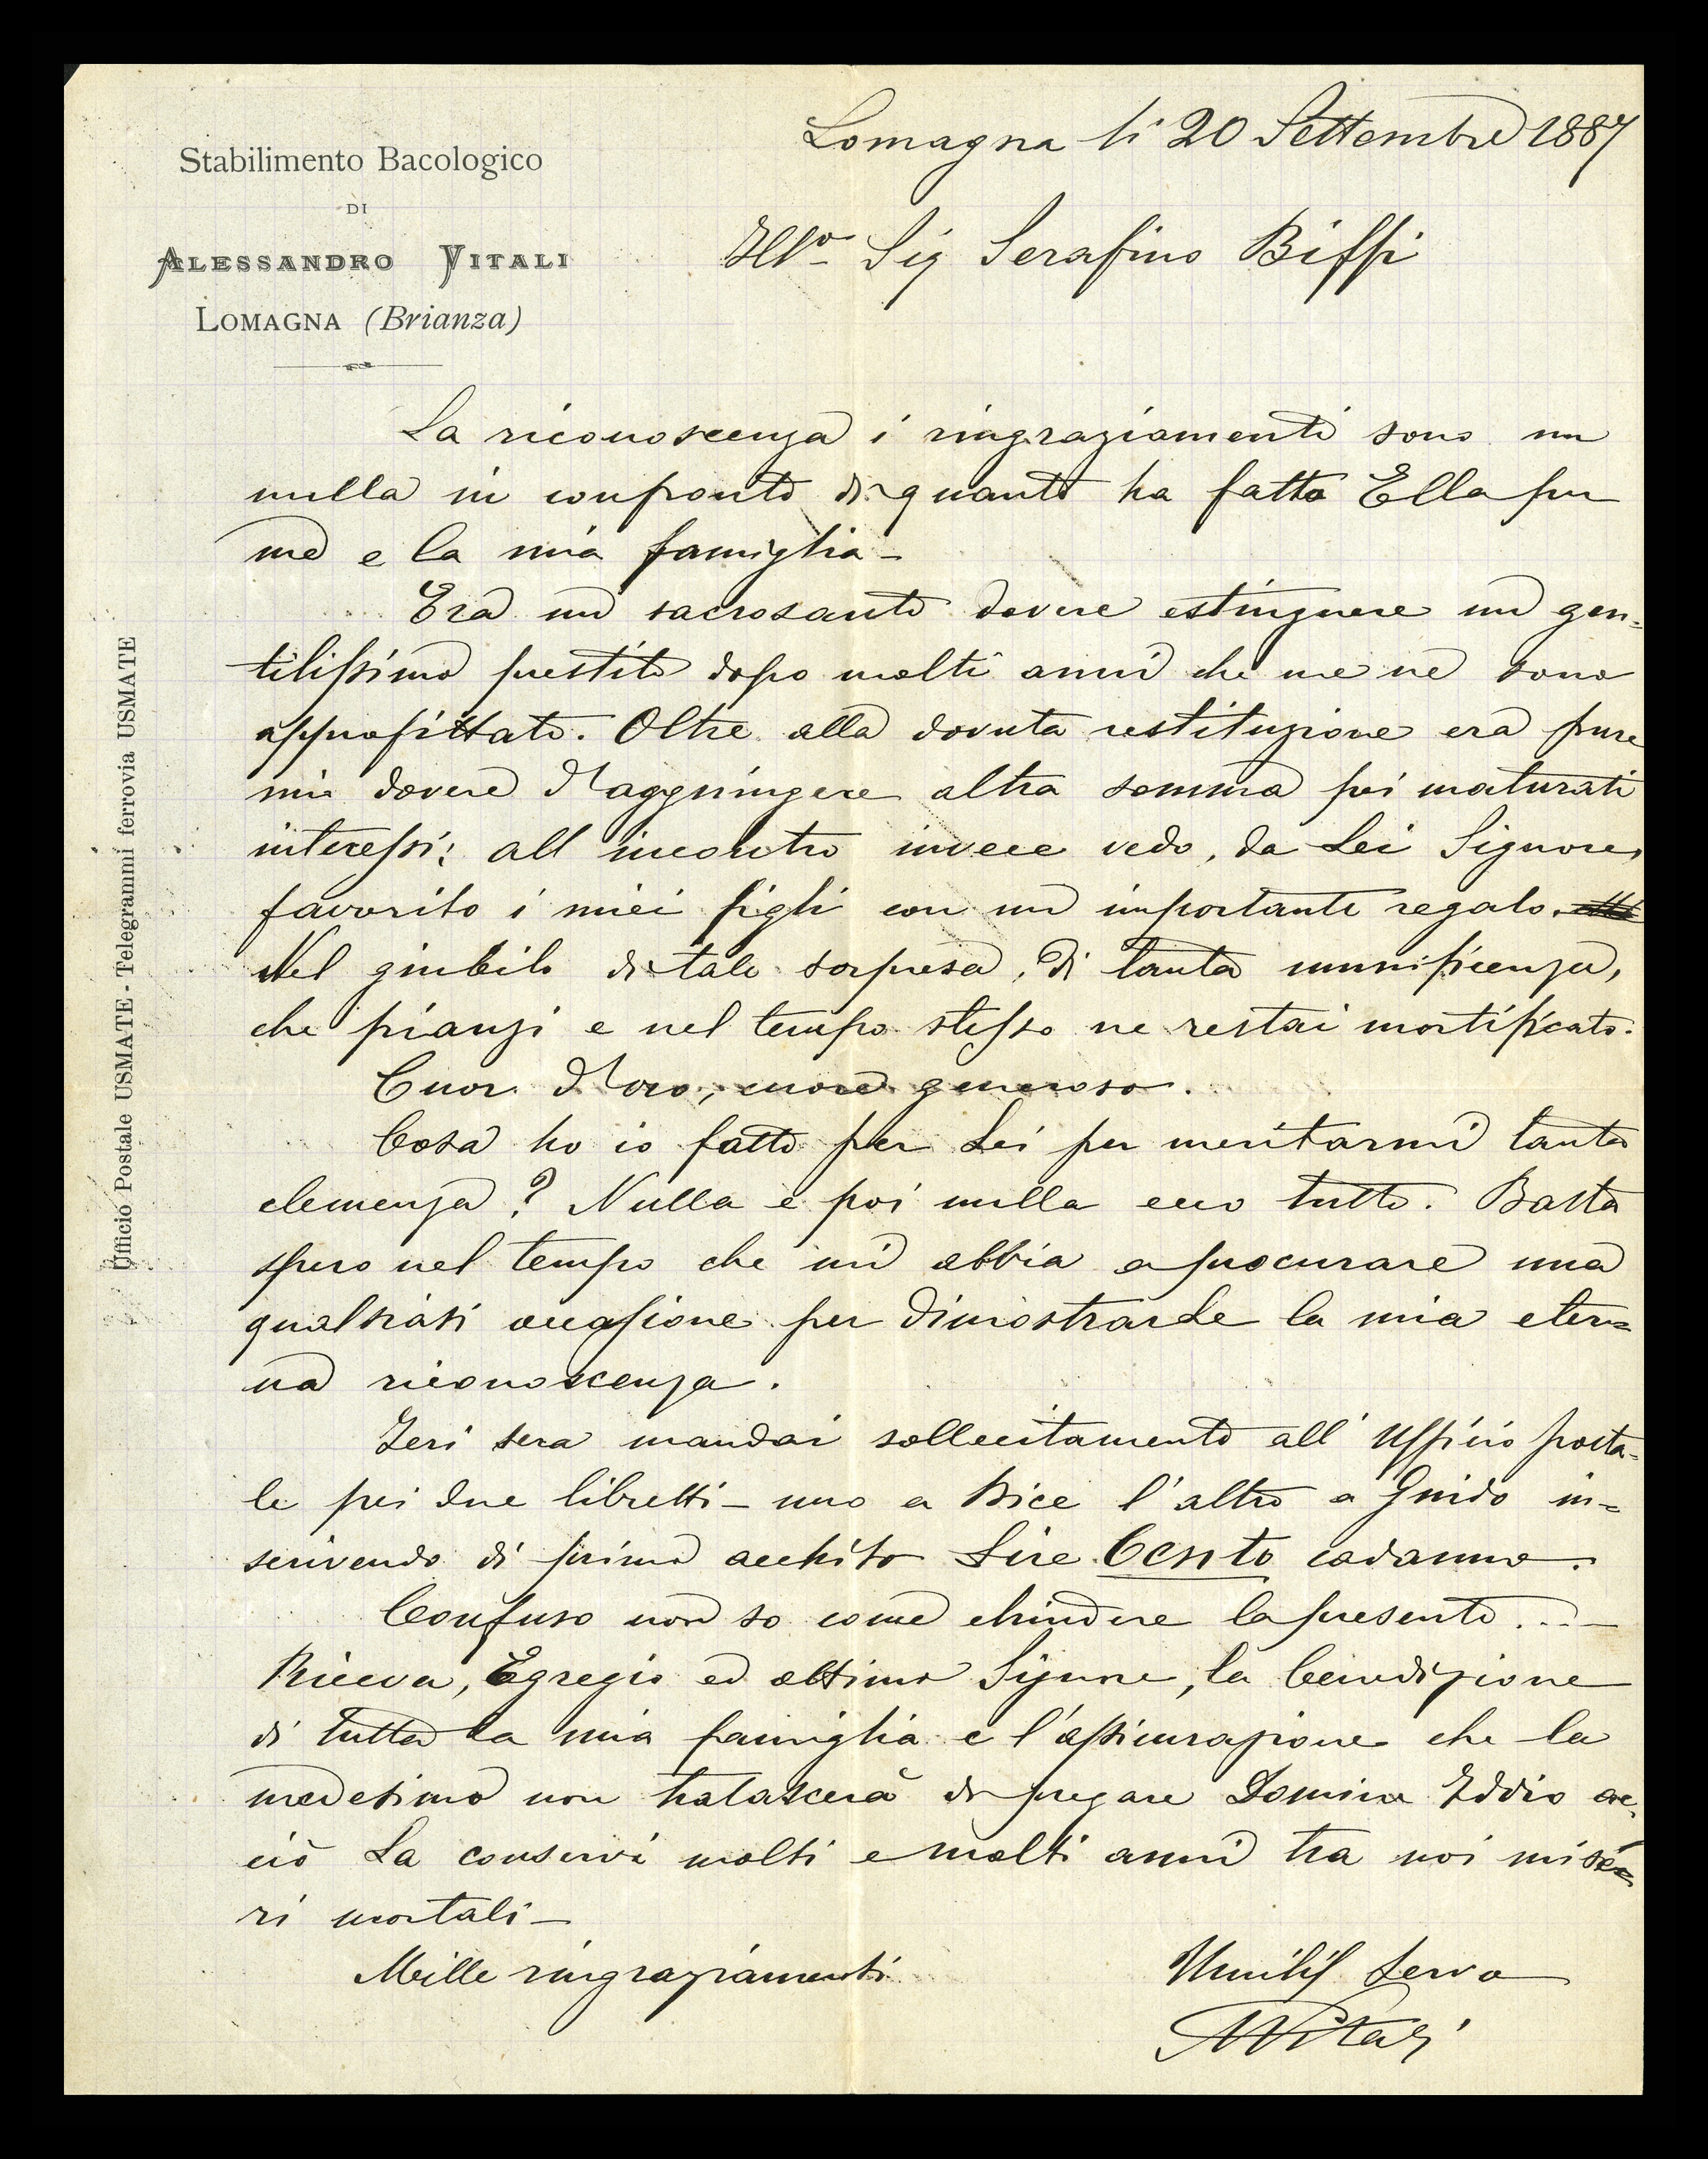 Stabilimento Bacologico
DI
ALESSANDRO VITALI
LOMAGNA (Brianza)
Ufficio Postale USMATE - Telegrammi ferrovia USMATE
Lomagna li 20 Settembre 1887
Illo Sig Serafino Biffi
La riconoscenza i ringraziamenti sono un
nulla in confronto di quanto ha fatto Ella per
me e la mia famiglia -
Era un sacrosanto dovere estinguere un gen-
tilissimo prestito dopo molti anni che me ne sono
approfittato. Oltre alla dovuta restituzione era pure
mio dovere d'aggiungere altra somma pei maturati
interessi; all incontro invece vedo, da Lei Signore,
favorito i miei figli con un importante regalo.
Nel giubilo di tale sorpresa, di tanta munificenza,
che piansi e nel tempo stesso ne restai mortificato.
Cuor d'oro, cuore generoso.
Cosa ho io fatto per Lei per meritarmi tanta
clemenza? Nulla e poi nulla ecco tutto. Basta
spero nel tempo che mi abbia a procurare una
qualsiasi occasione per dimostrarLe la mia eter=
na riconoscenza.
Ieri sera mandai sollecitamente all' Ufficio posta-
le pei due libretti - uno a Bice l'altro a Guido in=
scrivendo di primo acchito Lire Cento cadauno.
Confuso non so come chiudere la presente ....
Riceva, Egregio ed ottimo Signore, la benedizione
di tutta la mia famiglia e l'assicurazione che la
medesima non tralascerà di pregare Domine Iddio ac-
ciò La conservi molti e molti anni tra noi mise=
ri mortali -
Mille ringraziamenti
Umilis. Servo
AVitali